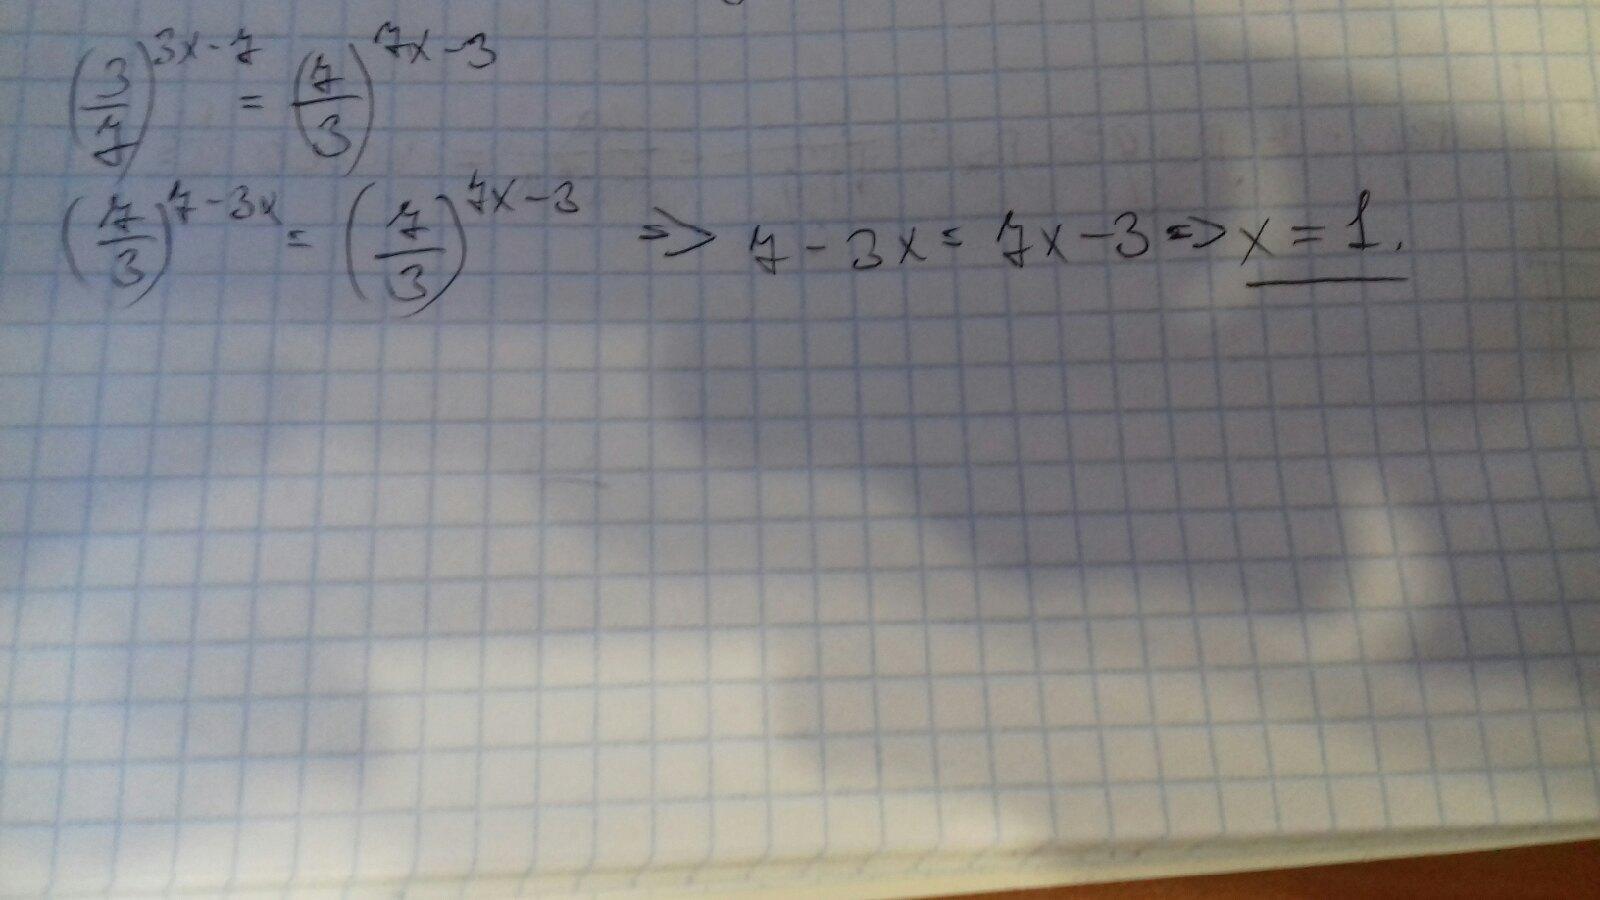 (3/7)^(3x-7) = (7/3)^(7x-3)
(7/3)^(7-3x) = (7/3)^(7x-3) => 7-3x = 7x-3 => x = 1.